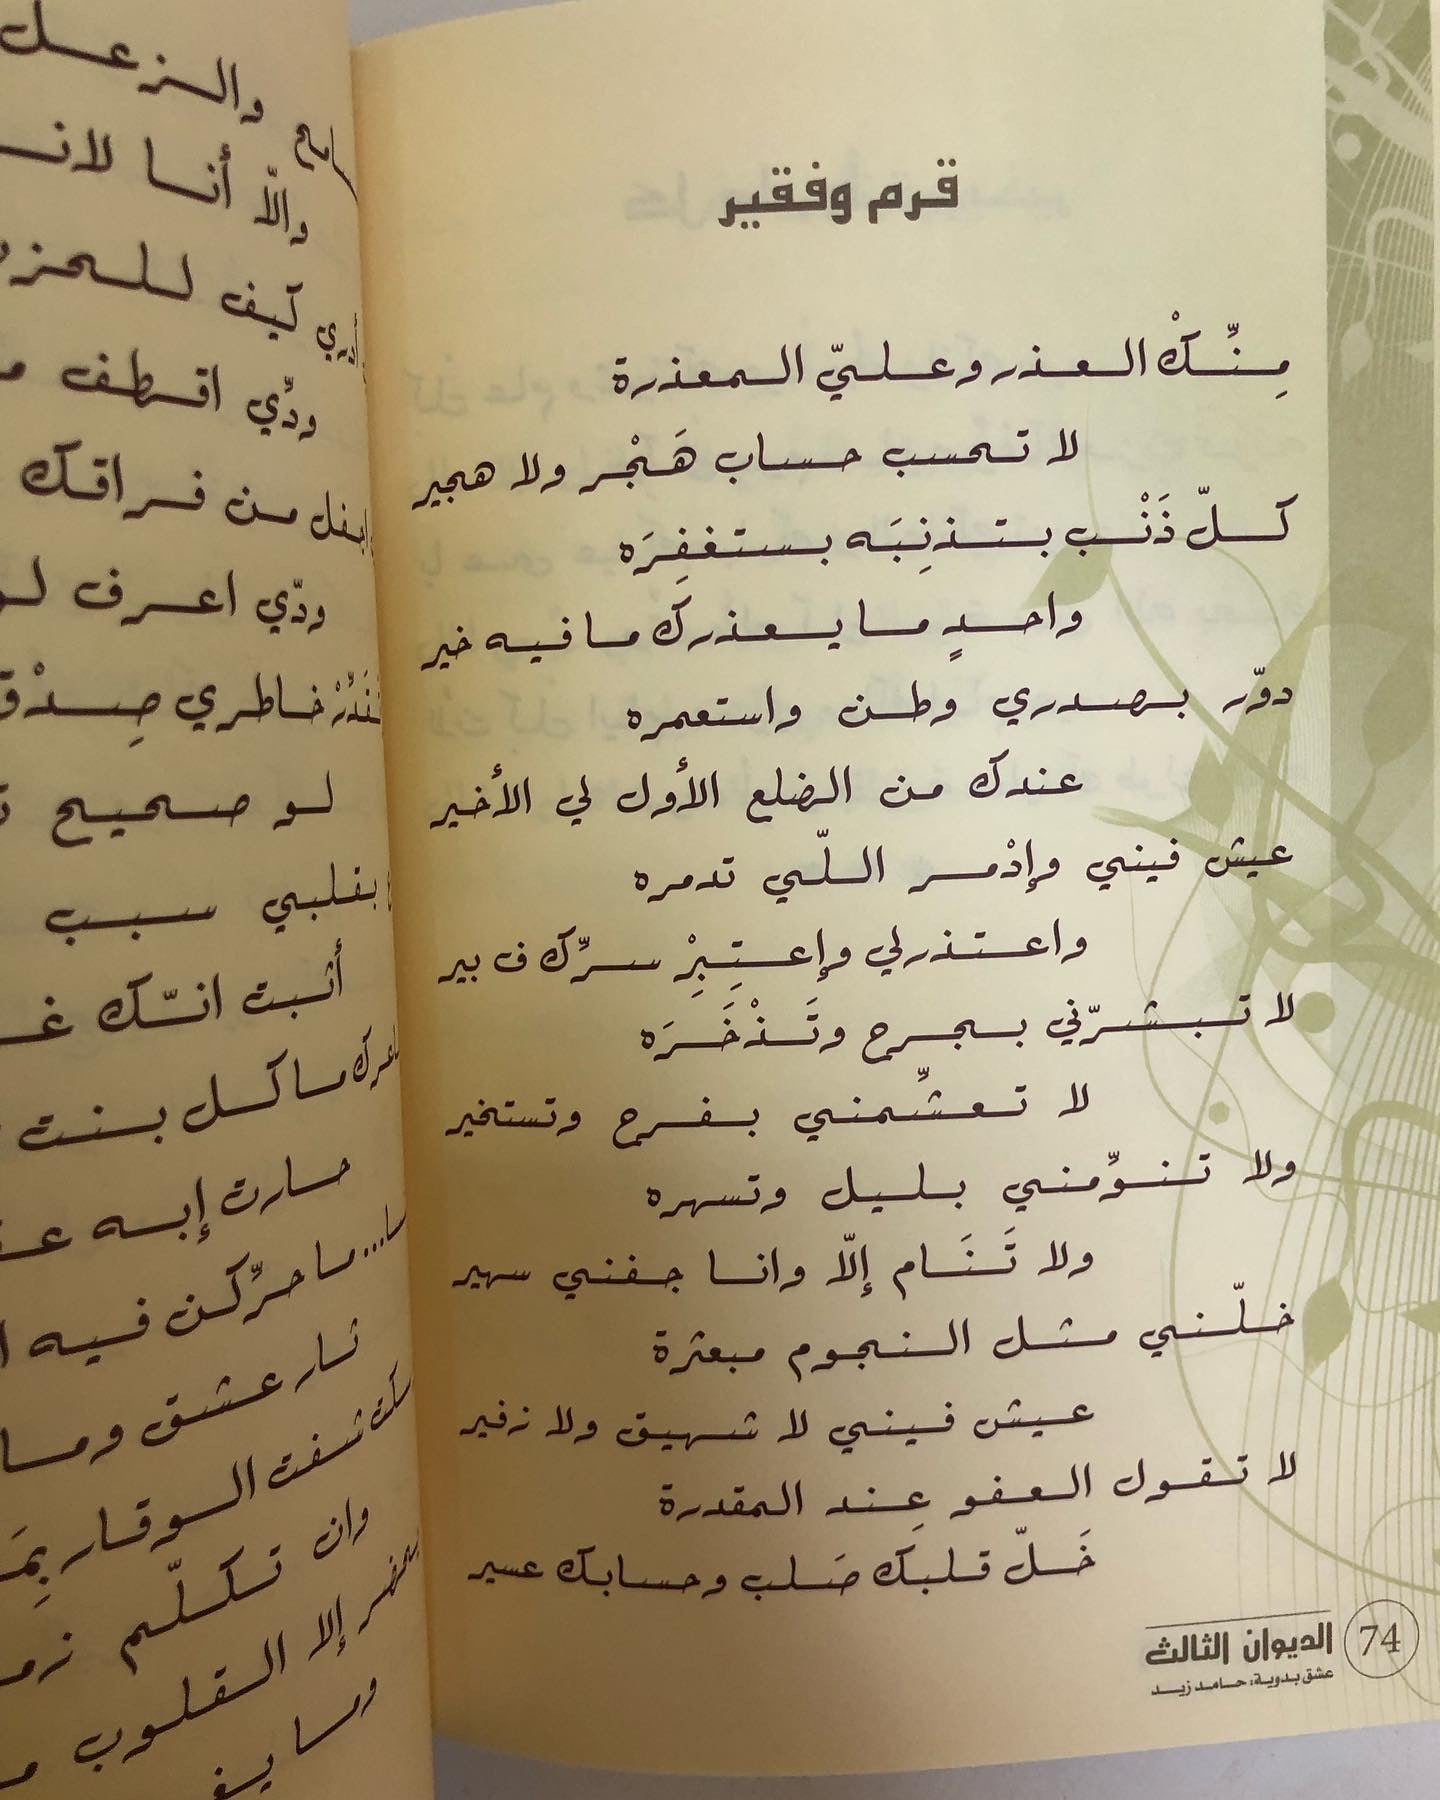 قرم وفقير
مِنِّكْ العذر وعليّ المعذرة
لا تحسب حساب هَجْر ولا هجير
كلّ ذَنْب بتذنِبَه بستغفِرَه
واحدٍ ما يعذرك ما فيه خير
دوّر بصدري وطن واستعمره
عندك من الضلع الأول لي الأخير
عيش فيني وإدْمر اللّي تدمره
واعتذرلي وإعتِبِرْ سرِّك ف بير
لا تبشرّني بجرح وتَذْخَرَه
لا تعشِّمني بفرح وتستخير
ولا تنوِّمني بليل وتسهره
ولا تَنَام إلّا وانا جفني سهير
خلّني مثل النجوم مبعثرة
عيش فيني لا شهيق ولا زفير
لا تقول العفو عِند المقدرة
خَلّ قلبك صَلب وحسابك عسير
74
الديوان الثالث
عشق بدوية: حامد زيد
والزعل
والّا أنا
أدري كيف
ودِّي اقطف
من فراقك
ودّي اعرف
خاطري
لو صحيح
بقلبي سبب
أثبت انّك
ما كل بنت
صارت إبه
ما حرِّكن فيه
ثار عشق وما
شفت الوقار
وان تكلّم
إلا القلوب
وما